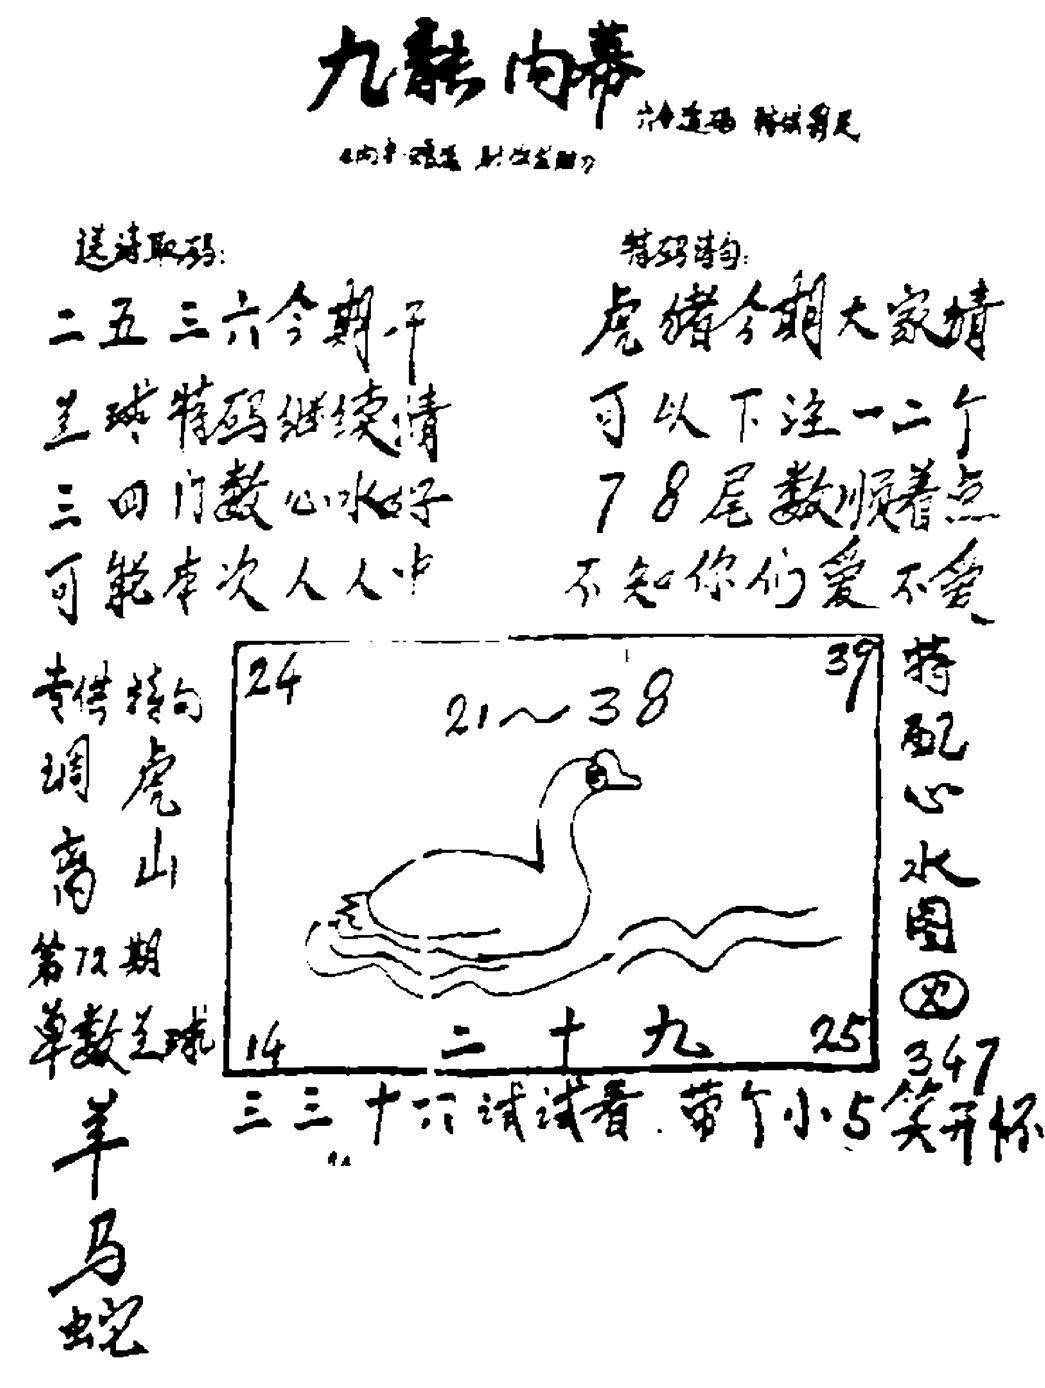 九龍内幕
送诗取码:
二五三六今期千
兰球特码继续猜
三四门数心水好
可能本次人人中
特码诗句:
虎猪今期大家猜
可以下注一二个
78尾数顺着点
不知你们爱不爱
专供特句
调虎
离山
第72期
单数兰球
羊
马
蛇
24
39
21～38
二十九
14
25
特配心水图
347
三三十六试试看.带个小5笑开怀